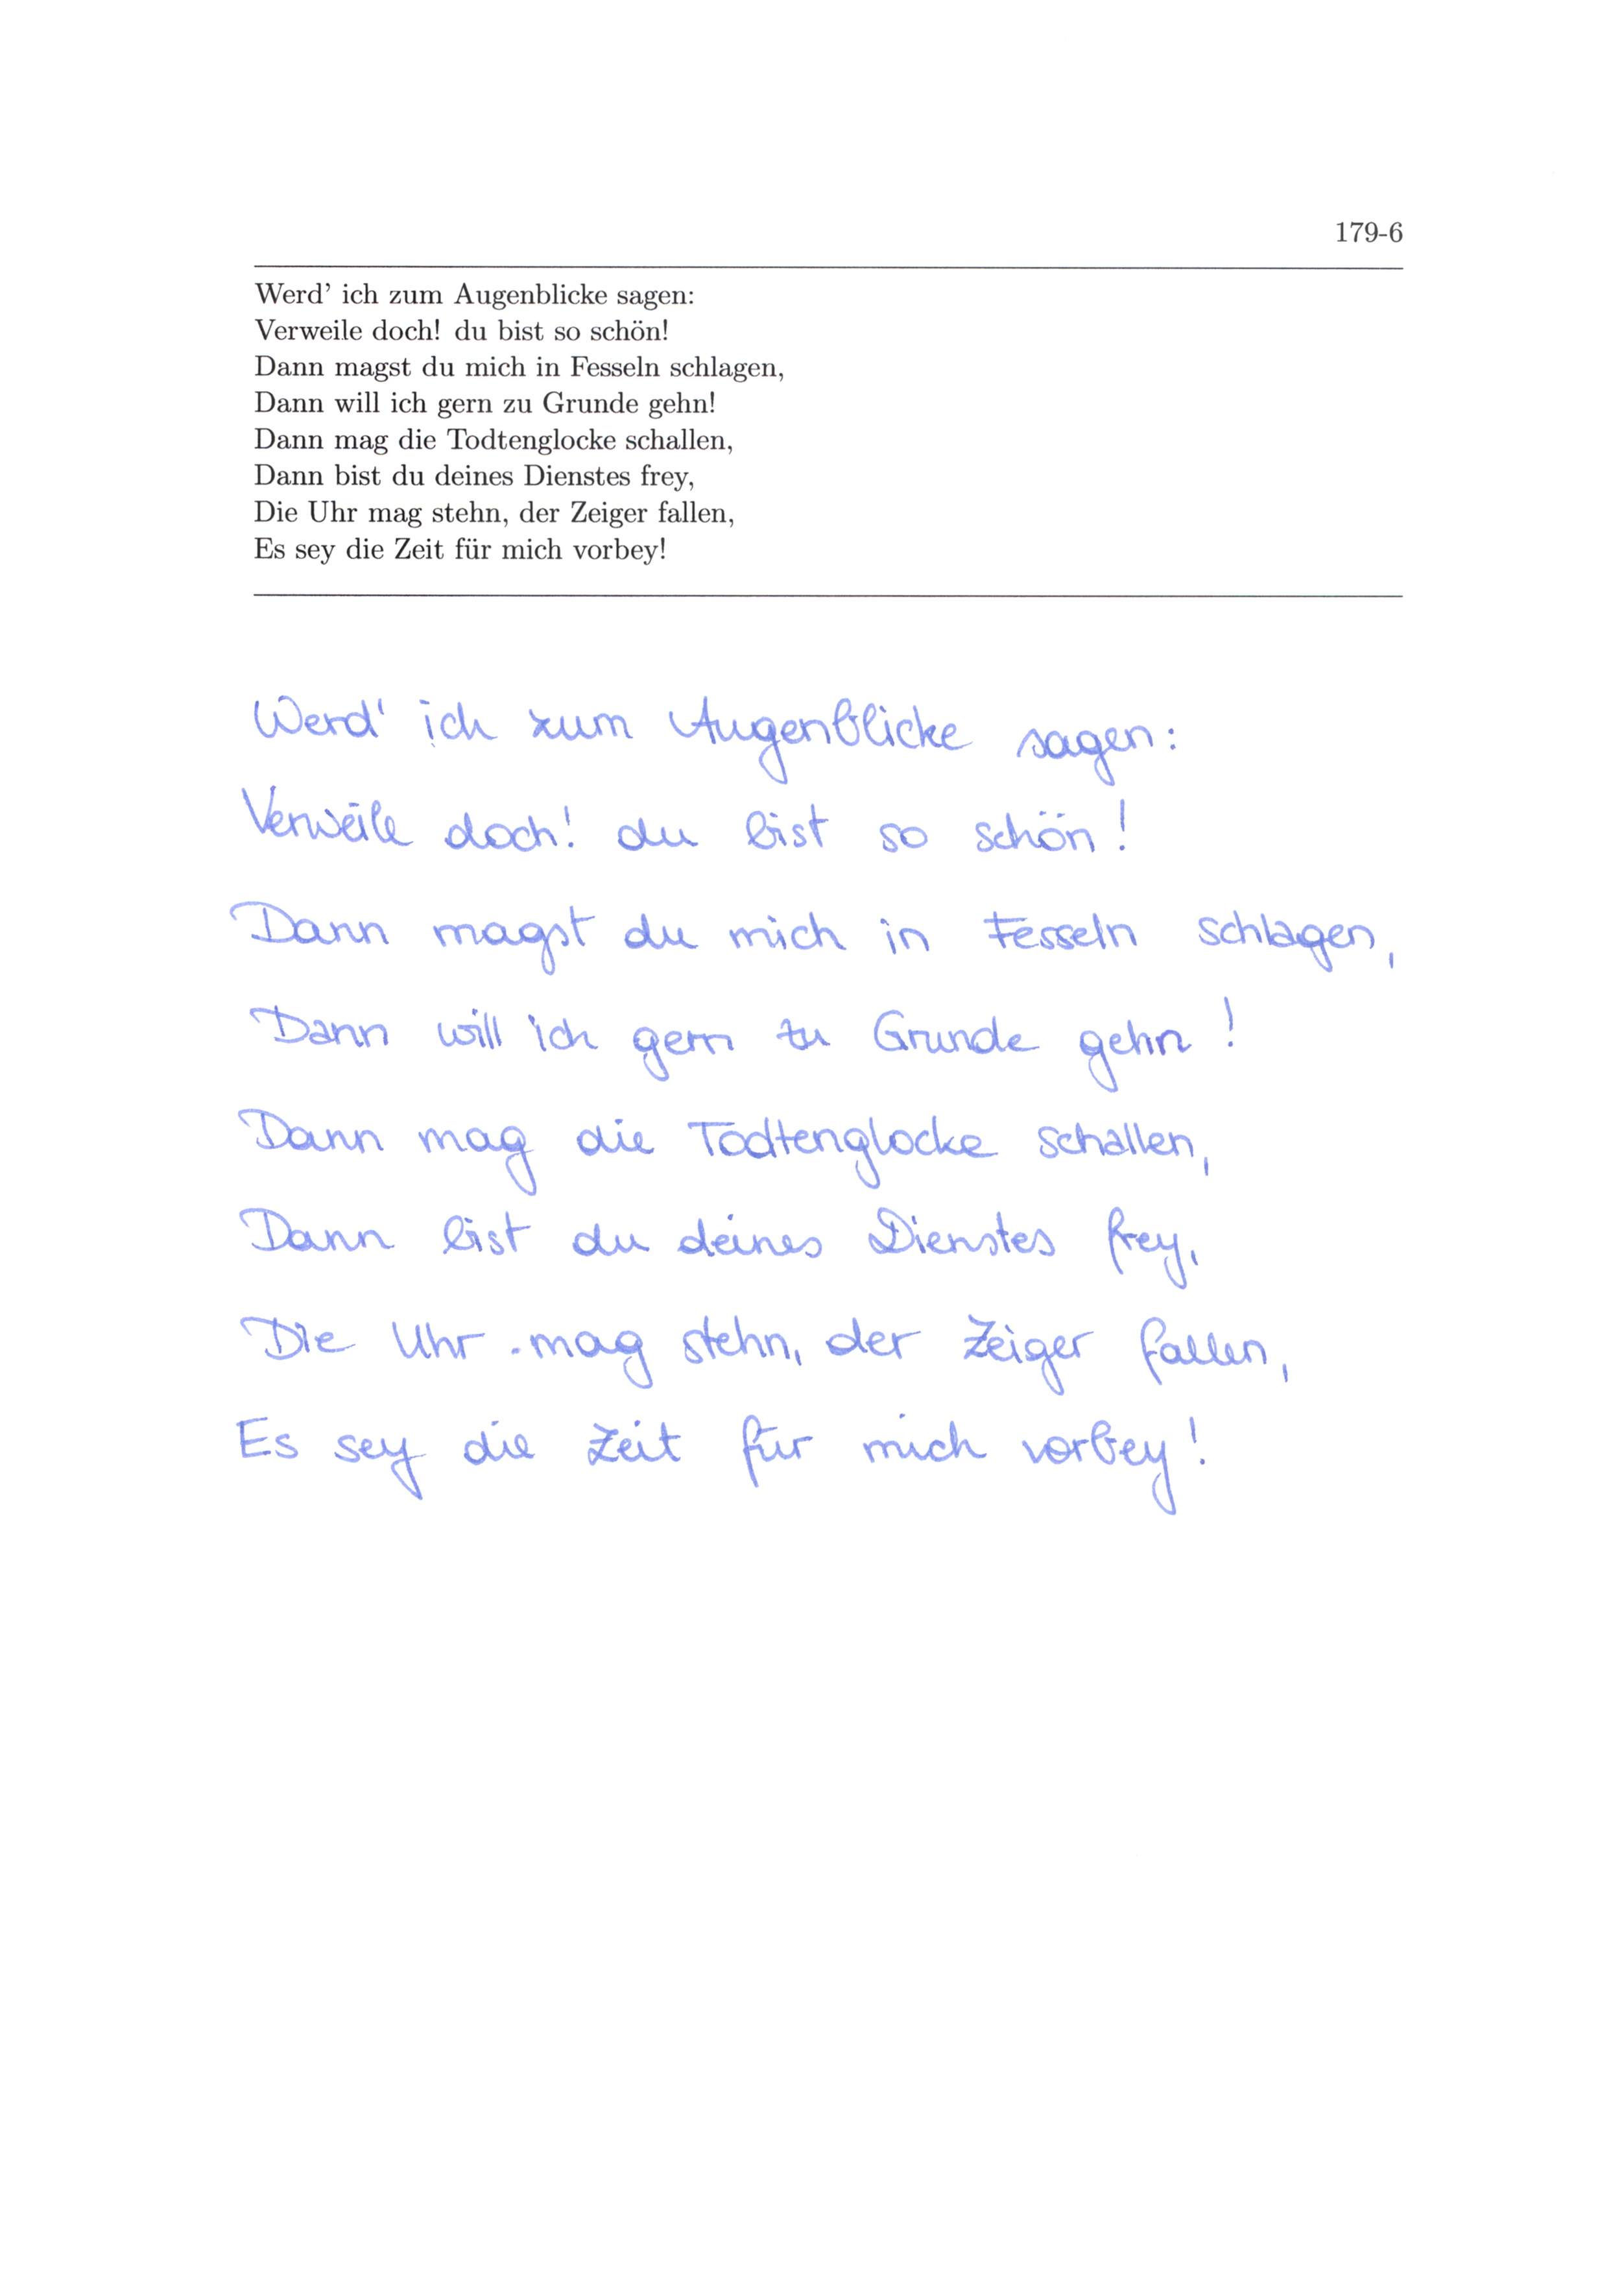 179-6
Werd' ich zum Augenblicke sagen:
Verweile doch! du bist so schön!
Dann magst du mich in Fesseln schlagen,
Dann will ich gern zu Grunde gehn!
Dann mag die Todtenglocke schallen,
Dann bist du deines Dienstes frey,
Die Uhr mag stehn, der Zeiger fallen,
Es sey die Zeit für mich vorbey!
Werd' ich zum Augenblicke sagen:
Verweile doch! du bist so schön!
Dann magst du mich in Fesseln schlagen,
Dann will ich gern zu Grunde gehn!
Dann mag die Todtenglocke schallen,
Dann bist du deines Dienstes frey,
Die Uhr mag stehn, der Zeiger fallen,
Es sey die Zeit für mich vorbey!